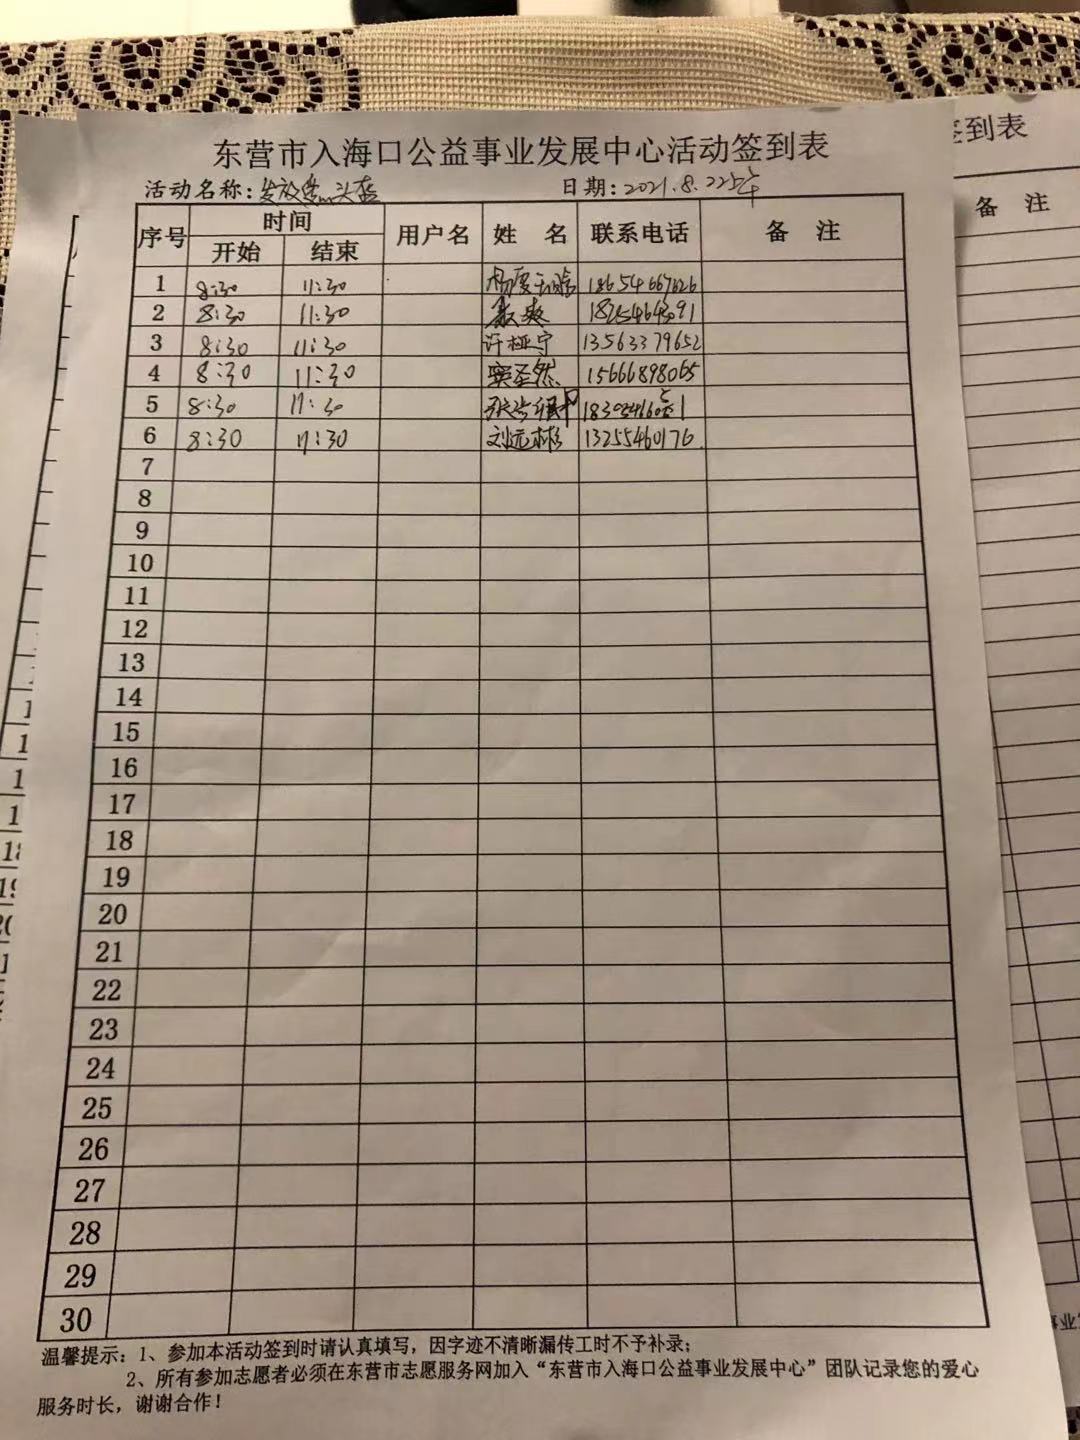 东营市入海口公益事业发展中心活动签到表
活动名称：发放 头盔 日期：2021.8.22
序号 时间 用户名 姓 名 联系电话 备 注
开始 结束
1 8:30 11:30 18654667626
2 8:30 11:30 爽
3 8:30 11:30 许桠宁 13563379652
4 8:30 11:30 窦圣然 15666898065
5 8:30 11:30
6 8:30 11:30 刘远彬 13255460176
7
8
9
10
11
12
13
14
15
16
17
18
19
20
21
22
23
24
25
26
27
28
29
30
温馨提示：1、参加本活动签到时请认真填写，因字迹不清晰漏传工时不予补录；
2、所有参加志愿者必须在东营市志愿服务网加入“东营市入海口公益事业发展中心”团队记录您的爱心
服务时长，谢谢合作！
签到表
备 注